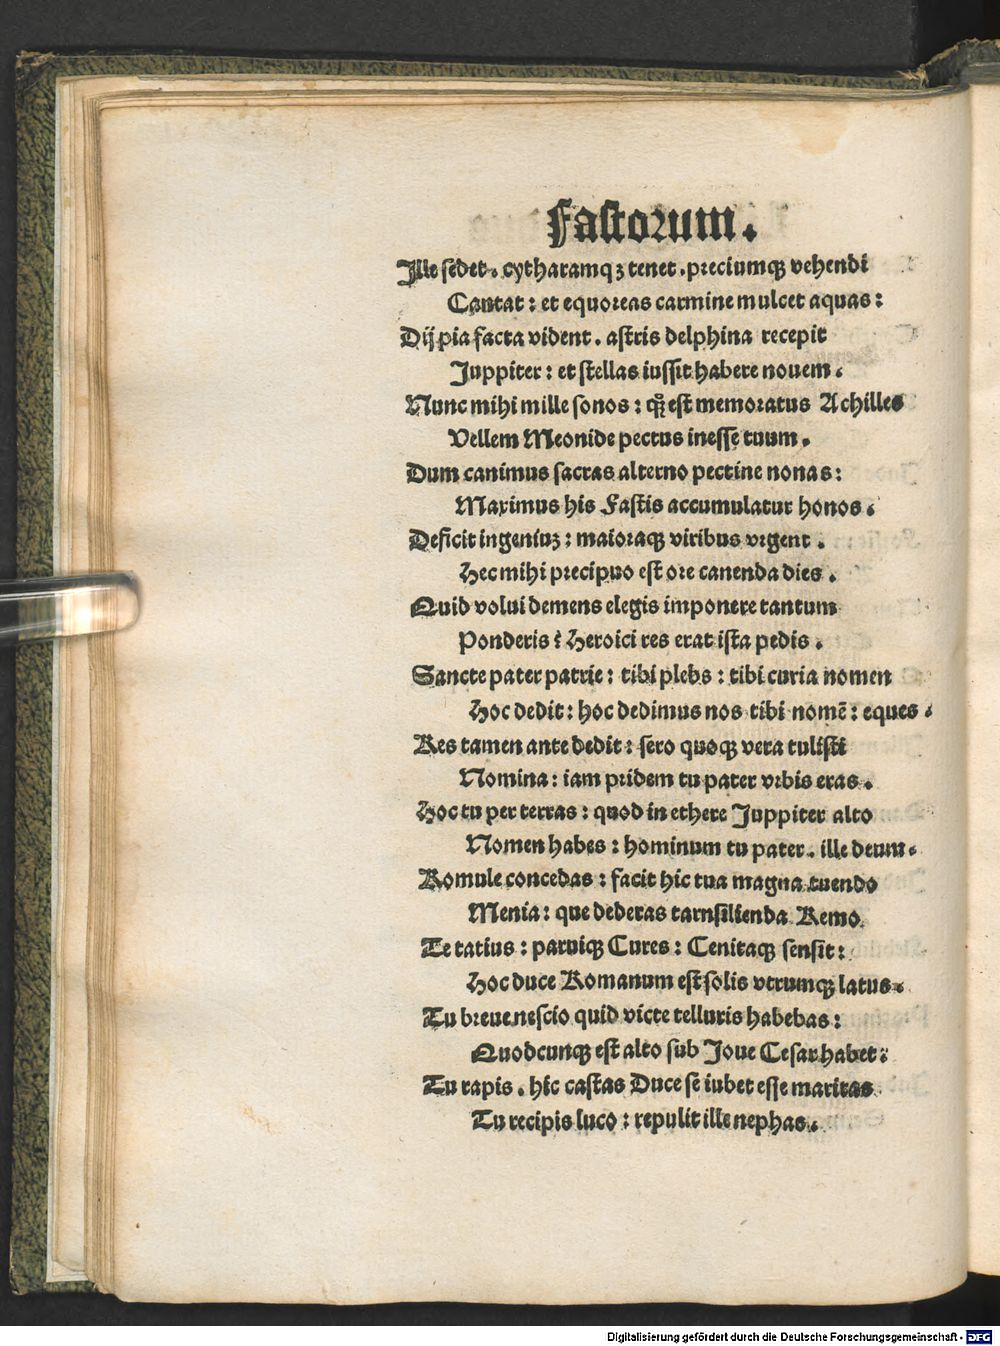 Fastorum.
Ille sedet. cytharamqꝫ tenet. preciumqꝫ vehendi
Cantat: et equoreas carmine mulcet aquas:
Dij pia facta vident. astris delphina recepit
Juppiter: et stellas iussit habere nouem.
Nunc mihi mille sonos: qꝫ est memoratus Achilles
Vellem Meonide pectus inesse tuum.
Dum canimus sacras alterno pectine nonas:
Maximus his Fastis accumulatur honos.
Deficit ingeniuꝫ: maioraqꝫ viribus vrgent.
Hec mihi precipuo est ore canenda dies.
Quid volui demens elegis imponere tantum
Ponderis? Heroici res erat ista pedis.
Sancte pater patrie: tibi plebs: tibi curia nomen
Hoc dedit: hoc dedimus nos tibi nomē: eques.
Res tamen ante dedit: sero quoqꝫ vera tulisti
Nomina: iam pridem tu pater vrbis eras.
Hoc tu per terras: quod in ethere Juppiter alto
Nomen habes: hominum tu pater. ille deum.
Romule concedas: facit hic tua magna tuendo
Menia: que dederas tarnsilienda Remo.
Te tatius: paruiqꝫ Cures: Cenitaqꝫ sensit:
Hoc duce Romanum est solis vtrumqꝫ latus.
Tu breue nescio quid victe telluris habebas:
Quodcunqꝫ est alto sub Joue Cesar habet:
Tu rapis. hic castas Duce se iubet esse maritas
Tu recipis luco: repulit ille nephas.
Digitalisierung gefördert durch die Deutsche Forschungsgemeinschaft - DFG